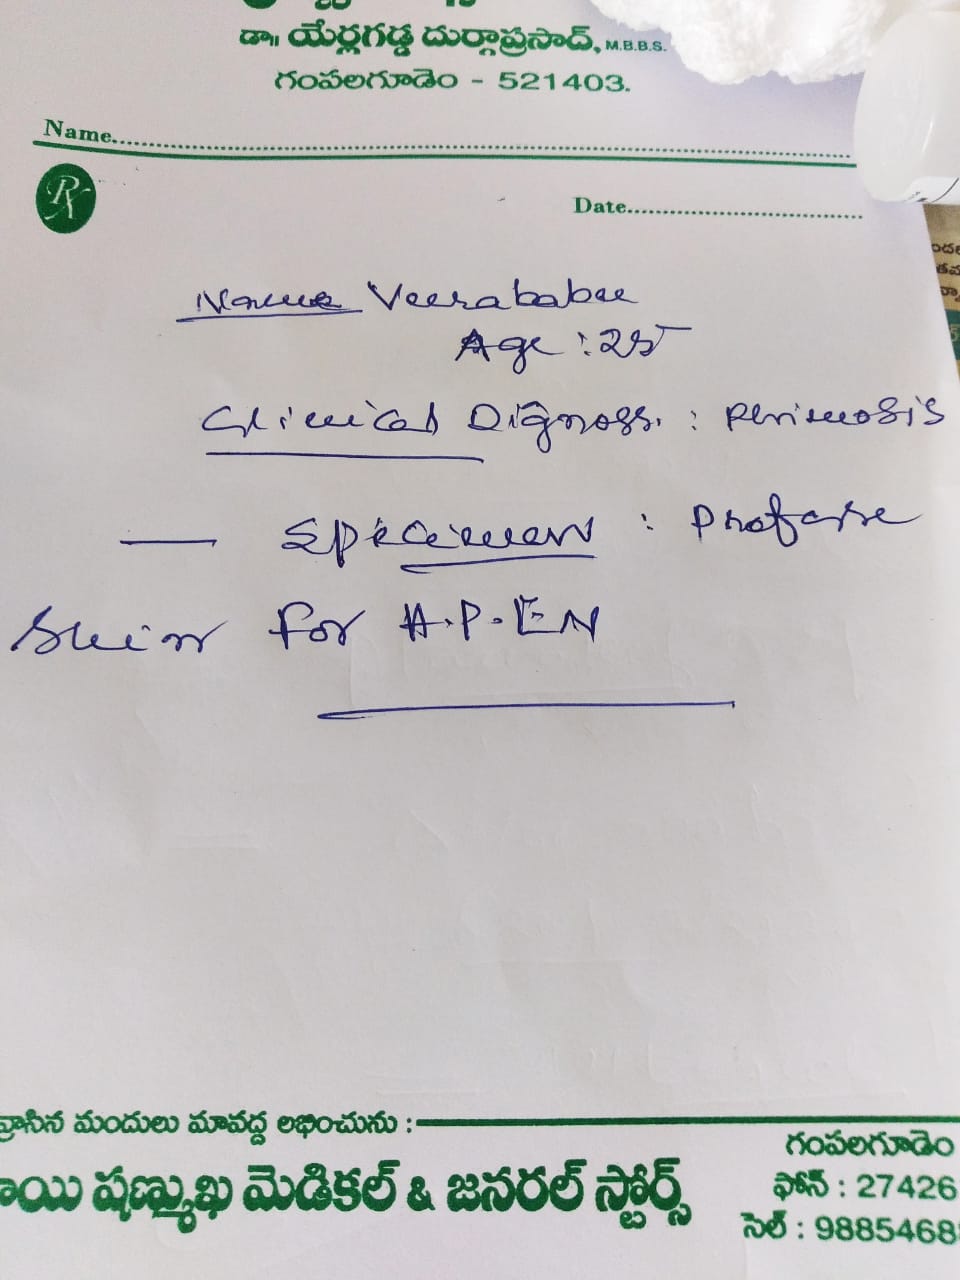 డా॥ యేర్లగడ్డ దుర్గాప్రసాద్, M.B.B.S.
గంపలగూడెం - 521403.
Name
Rx
Date
Name Veerababu
Age : 25
Clinical Diagnosis : Phimosis
— Specimen :
Skin for H.P.EN
వ్రాసిన మందులు మావద్ద లభించును :
షణ్ముఖ మెడికల్ & జనరల్ స్టోర్స్
గంపలగూడెం
ఫోన్ : 27426
సెల్ : 9885468